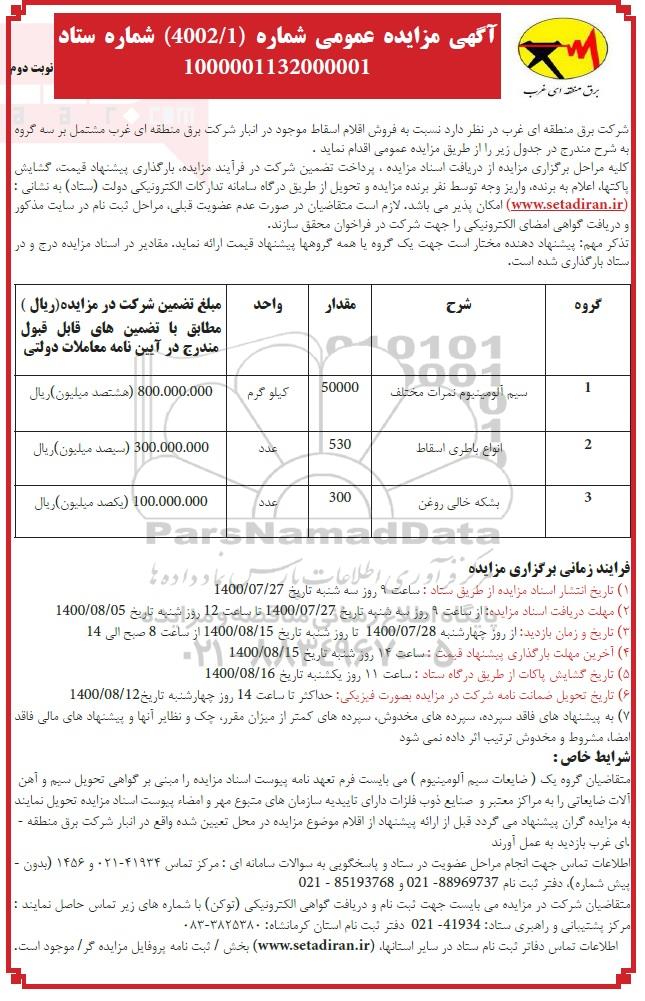 آگهی مزایده عمومی شماره (4002/1) شماره ستاد
1000001132000001
نوبت دوم
برق منطقه ای غرب
شرکت برق منطقه ای غرب در نظر دارد نسبت به فروش اقلام اسقاط موجود در انبار شرکت برق منطقه ای غرب مشتمل بر سه گروه
به شرح مندرج در جدول زیر را از طریق مزایده عمومی اقدام نماید .
کلیه مراحل برگزاری مزایده از دریافت اسناد مزایده ، پرداخت تضمین شرکت در فرآیند مزایده، بارگذاری پیشنهاد قیمت، گشایش
پاکتها، اعلام به برنده، واریز وجه توسط نفر برنده مزایده و تحویل از طریق درگاه سامانه تدارکات الکترونیکی دولت (ستاد) به نشانی :
(www.setadiran.ir) امکان پذیر می باشد. لازم است متقاضیان در صورت عدم عضویت قبلی، مراحل ثبت نام در سایت مذکور
و دریافت گواهی امضای الکترونیکی را جهت شرکت در فراخوان محقق سازند.
تذکر مهم: پیشنهاد دهنده مختار است جهت یک گروه یا همه گروهها پیشنهاد قیمت ارائه نماید. مقادیر در اسناد مزایده درج و در
ستاد بارگذاری شده است.
گروه شرح مقدار واحد مبلغ تضمین شرکت در مزایده(ریال )
مطابق با تضمین های قابل قبول
مندرج در آیین نامه معاملات دولتی
1 سیم آلومینیوم نمرات مختلف 50000 کیلو گرم 800.000.000 (هشتصد میلیون)ریال
2 انواع باطری اسقاط 530 عدد 300.000.000 (سیصد میلیون)ریال
3 بشکه خالی روغن 300 عدد 100.000.000 (یکصد میلیون)ریال
ParsNamadData
فرایند زمانی برگزاری مزایده
۱) تاریخ انتشار اسناد مزایده از طریق ستاد : ساعت ۹ روز سه شنبه تاریخ 1400/07/27
۲) مهلت دریافت اسناد مزایده: از ساعت ۹ روز سه شنبه تاریخ 1400/07/27 تا ساعت 12 روز شنبه تاریخ 1400/08/05
۳) تاریخ و زمان بازدید: از روز چهارشنبه 1400/07/28 تا روز شنبه تاریخ 1400/08/15 از ساعت 8 صبح الی 14
۴) آخرین مهلت بارگذاری پیشنهاد قیمت : ساعت ۱۴ روز شنبه تاریخ 1400/08/15
۵) تاریخ گشایش پاکات از طریق درگاه ستاد : ساعت ۱۱ روز یکشنبه تاریخ 1400/08/16
۶) تاریخ تحویل ضمانت نامه شرکت در مزایده بصورت فیزیکی: حداکثر تا ساعت 14 روز چهارشنبه تاریخ1400/08/12
۷) به پیشنهاد های فاقد سپرده، سپرده های مخدوش، سپرده های کمتر از میزان مقرر، چک و نظایر آنها و پیشنهاد های مالی فاقد
امضا، مشروط و مخدوش ترتیب اثر داده نمی شود
شرایط خاص :
متقاضیان گروه یک ( ضایعات سیم آلومینیوم ) می بایست فرم تعهد نامه پیوست اسناد مزایده را مبنی بر گواهی تحویل سیم و آهن
آلات ضایعاتی را به مراکز معتبر و صنایع ذوب فلزات دارای تاییدیه سازمان های متبوع مهر و امضاء پیوست اسناد مزایده تحویل نمایند
به مزایده گران پیشنهاد می گردد قبل از ارائه پیشنهاد از اقلام موضوع مزایده در محل تعیین شده واقع در انبار شرکت برق منطقه -
.ای غرب بازدید به عمل آورند
اطلاعات تماس جهت انجام مراحل عضویت در ستاد و پاسخگویی به سوالات سامانه ای : مرکز تماس ۴۱۹۳۴-۰۲۱ و ۱۴۵۶ (بدون -
پیش شماره)، دفتر ثبت نام 88969737- 021 و 85193768 - 021
متقاضیان شرکت در مزایده می بایست جهت ثبت نام و دریافت گواهی الکترونیکی (توکن) با شماره های زیر تماس حاصل نمایند :
مرکز پشتیبانی و راهبری ستاد: 41934- 021 دفتر ثبت نام استان کرمانشاه: ۳۸۲۵۳۸۰-۰۸۳
اطلاعات تماس دفاتر ثبت نام ستاد در سایر استانها، (www.setadiran.ir) بخش / ثبت نامه پروفایل مزایده گر/ موجود است.